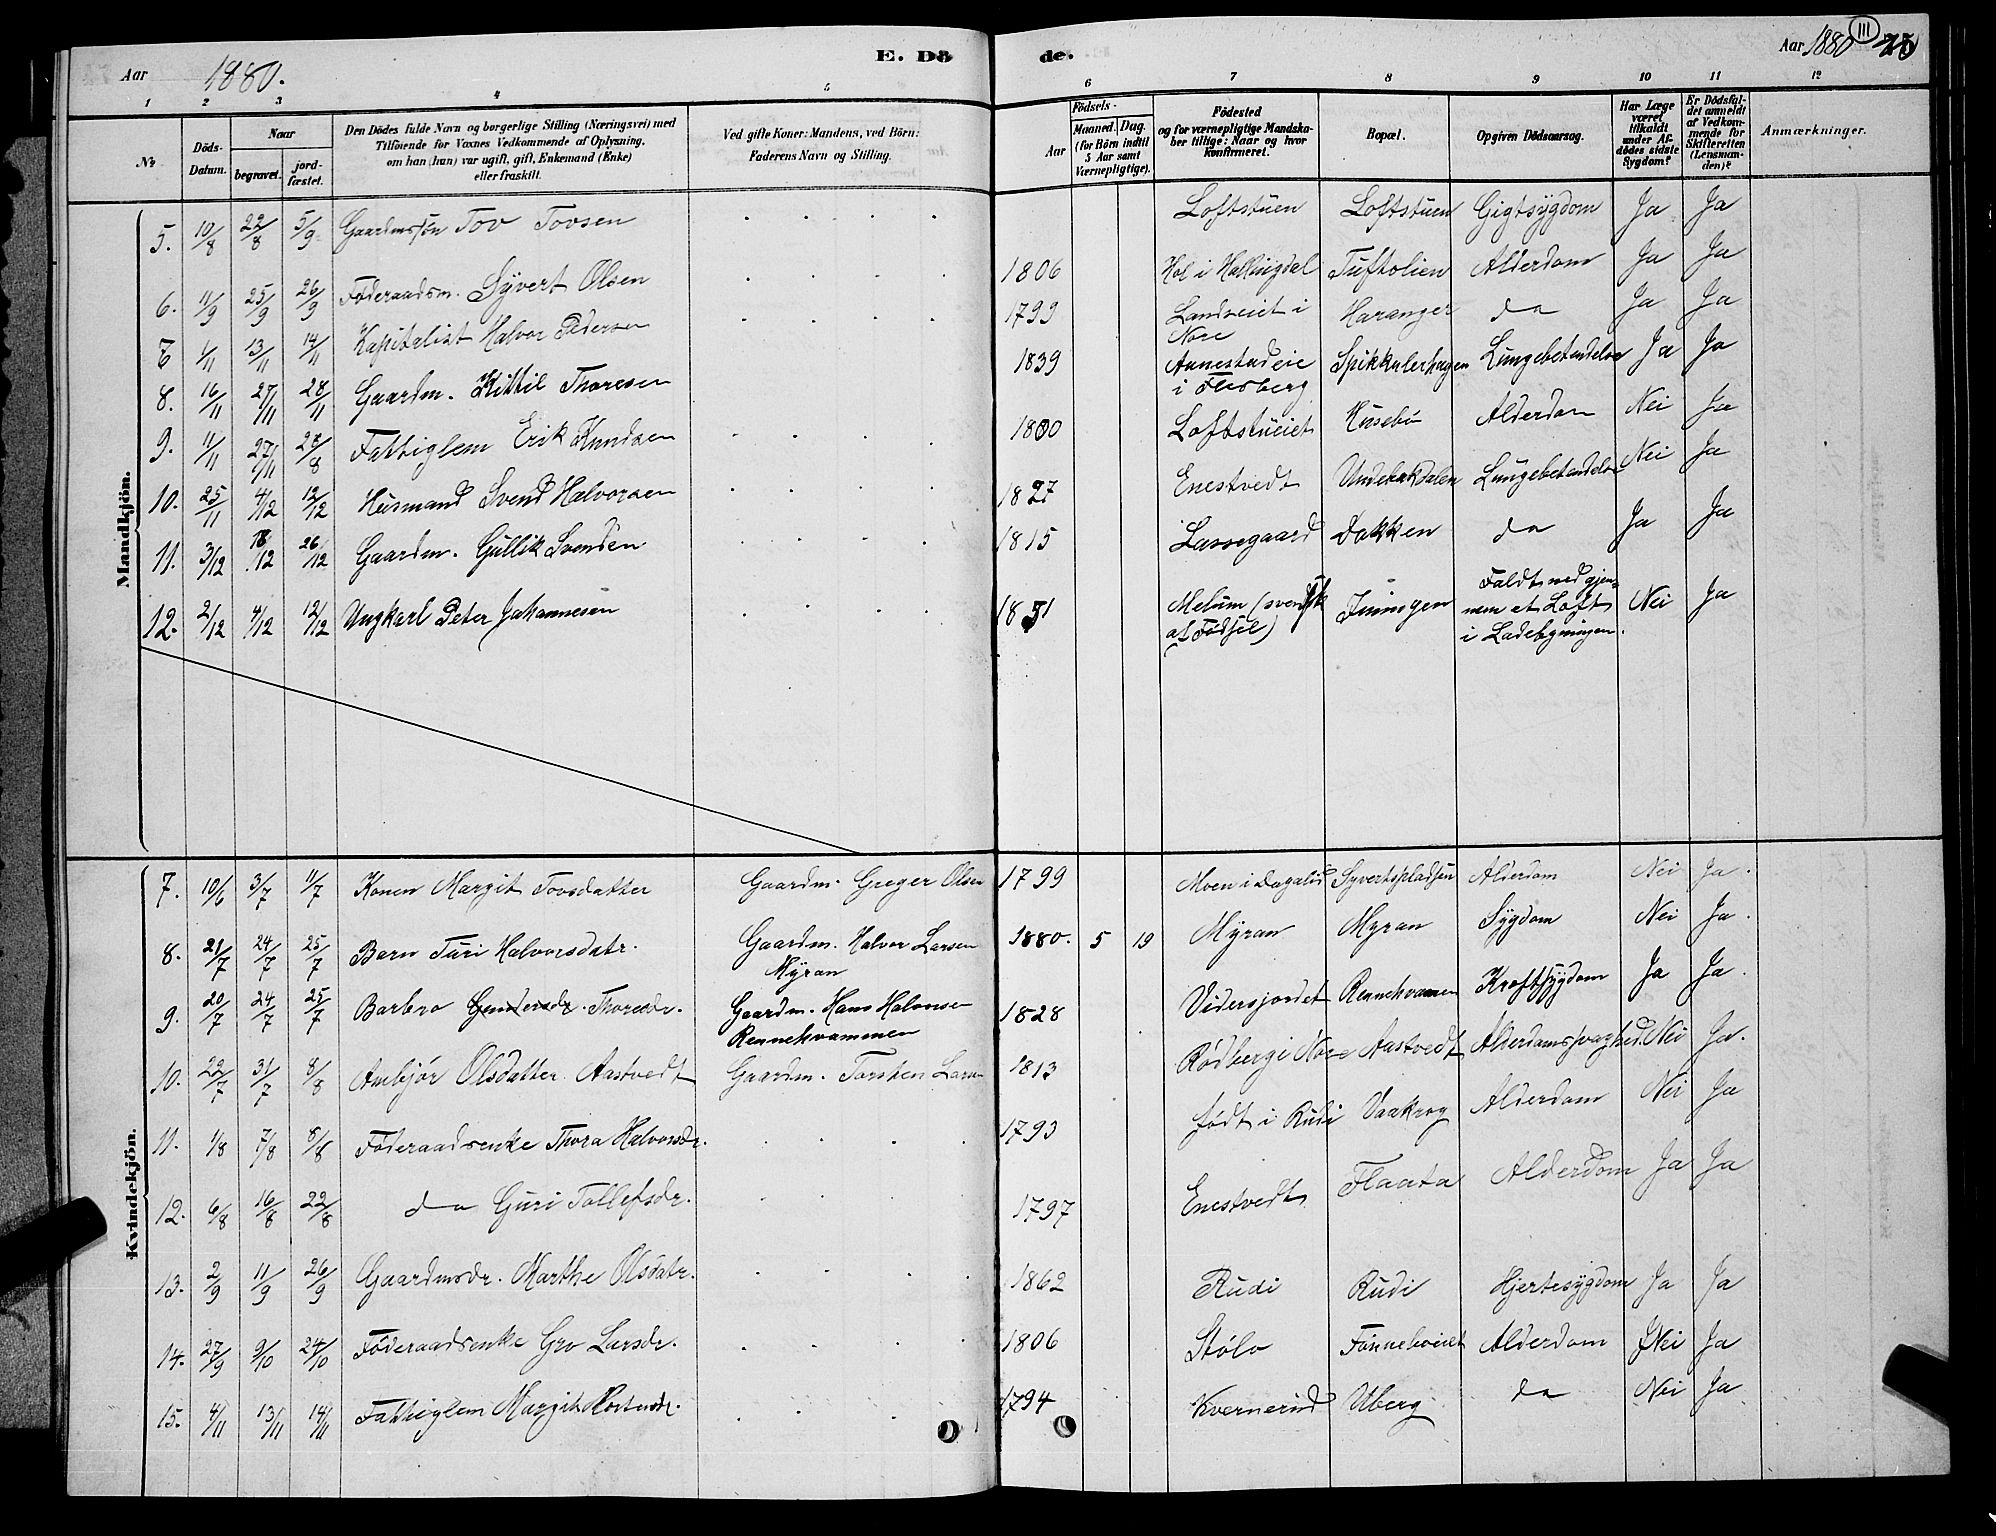 Aar 1880.
E. Dö
1 2 3 4 5
№
Döds-Datum.
Naar
begravet. jord-fæstet.
Den Dödes fulde Navn og borgerlige Stilling (Næringsvei) med
Tilföiende for Voxnes Vedkommende af Oplysning,
om han (hun) var ugift, gift, Enkemand (Enke)
eller fraskilt.
Ved gifte Koner: Mandens, ved Börn:
Faderens Navn og Stilling.
de.
Aar 1880
111
6 7 8 9 10 11 12
Aar
Födsels-
Maaned. Dag.
(for Börn indtil
5 Aar samt
Værnepligtige).
Födested
og for værnepligtige Mandska-
ber tillige: Naar og hvor
Konfirmeret.
Bopæl.
Opgiven Dödsaarsag.
Har Læge
været
tilkaldt
under Af-
dödes sidste
Sygdom?
Er Dödsfal-
det anmeldt
af Vedkom-
mende for
Skifteretten
(Lensman-
den)?
Anmærkninger.
Mandkjön.
5. 10/8 22/8 5/9 Gaardmssøn Tov Tovsen Loftstuen Loftstuen Gigtsygdom Ja Ja
6. 11/9 25/9 26/9 Føderaadsm. Syvert Olsen 1806 Hol i Hallingdal Tuftolien Alderdom Ja Ja
7 1/11 13/11 14/11 Kapitalist Halvor Pedersen 1799 Landseiet i Nore Haranger do Ja Ja
8. 16/11 27/11 28/11 Gaardm. Kittil Thoresen 1839 Aunestadeie i Flesberg Spikkalerhagen Lungebetændelse Ja Ja
9. 11/11 27/11 28/8 Fattiglem Erik Knudsen 1800 Loftstueiet Husebø Alderdom Nei Ja
10. 25/11 4/12 12/12 Husmand Svend Halvorsen 1827 Enestvedt Lungebetændelse Nei Ja
11. 3/12 18/12 26/12 Gaardm. Gullik Svendsen 1815 Lassegaard Dokken do Ja Ja
12. 2/12 4/12 12/12 Ungkarl Peter Johannesen 1851 Melum (svensk af Fødsel) Juingen Faldt ned gjen-
nem et Loft
i Ladebygningen. Nei Ja
Kvindekjön.
7. 10/6 3/7 11/7 Konen Margit Tovsdatter Gaardm. Greger Olsen 1799 Moen i Dagalid Syvertspladsen Alderdom Nei Ja.
8. 21/7 24/7 25/7 Barn Turi Halvorsdatr. Gaardm. Halvor Larsen Myran 1880. 5 19 Myran Myran Sygdom Nei Ja.
9. 20/7 24/7 25/7 Barbro Gundersdr. Thoresdr. Gaardm. Hans Halvorsen Rennehvammen 1828 Vidersjordet Rennehvammen Kræftsygdom Ja Ja.
10. 22/7 31/7 8/8 Anbjør Olsdatter Aastvedt Gaardm. Torsten Larsen 1813 Rødberg i Nore Aastvedt Alderdomssvaghed. Nei Ja.
11. 1/8 7/8 8/8 Føderaadsenke Thora Halvorsdr. 1793 født i Rudi Vaakrog Alderdom Nei Ja
12. 6/8 16/8 22/8 do Guri Tollefsdr. 1797 Enestvedt Flaata Alderdom Ja Ja
13. 2/9 11/9 26/9 Gaardmsdr. Marthe Olsdatr. 1862 Rudi Rudi Hjertesygdom Ja Ja
14. 27/9 9/10 24/10 Føderaadsenke Gro Larsdr. 1806 Stølo Fønneboeiet Alderdom Nei Ja
15. 4/11 13/11 14/11 Fattiglem Margit 1794 Kvernerud Uberg do Nei Ja